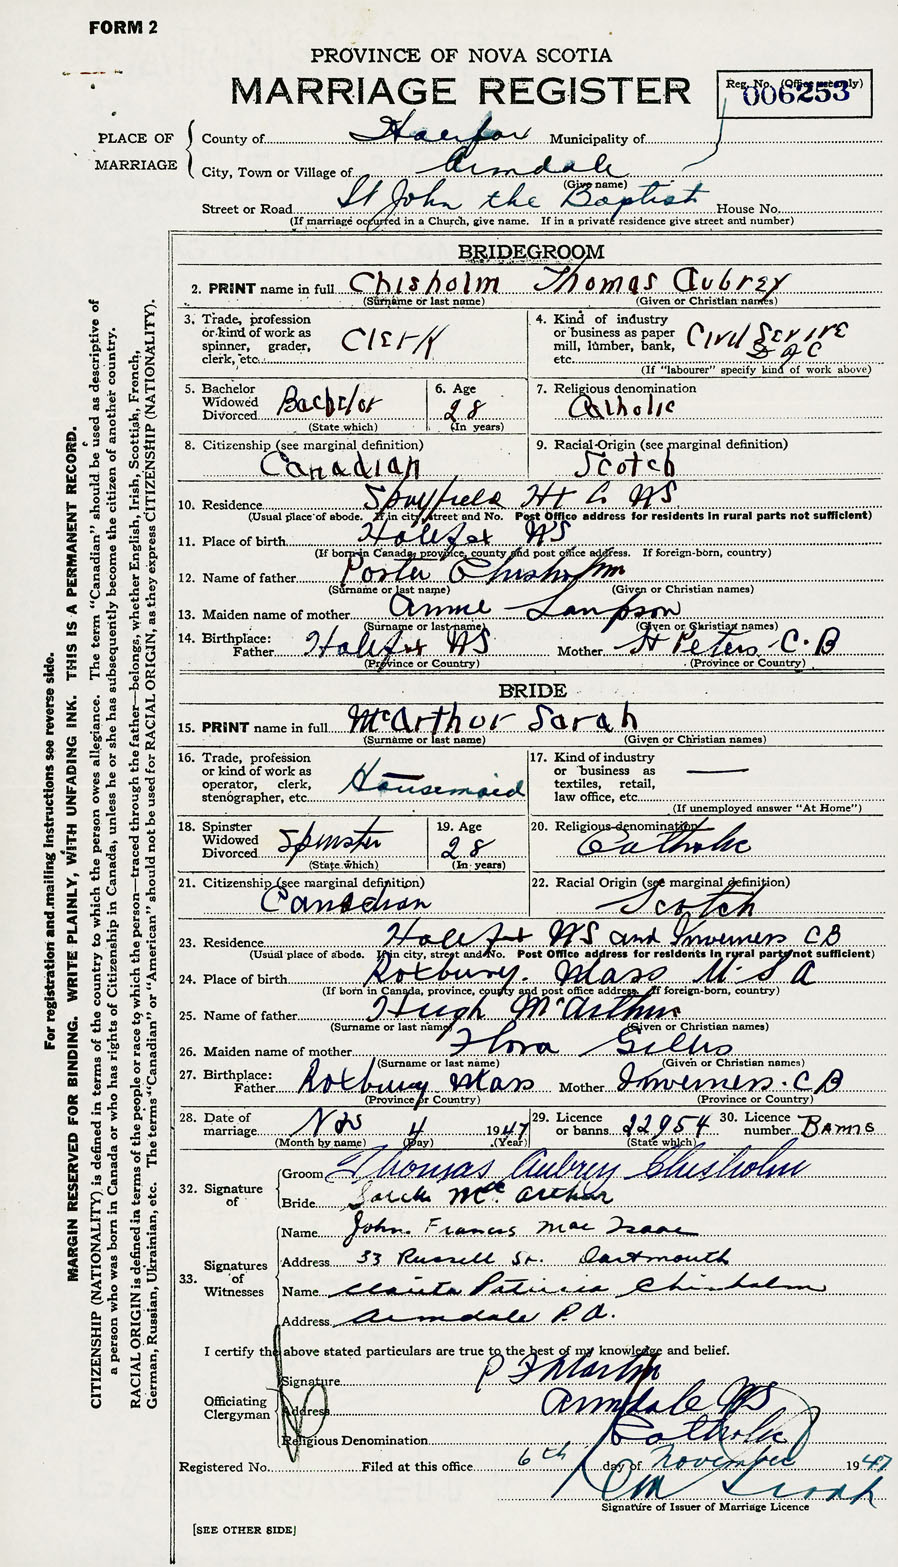 FORM 2
PROVINCE OF NOVA SCOTIA
MARRIAGE REGISTER
Reg. No. (Office use only)
006253
PLACE OF MARRIAGE
County of Halifax Municipality of
City, Town or Village of Armdale
(Give name)
Street or Road St John the Baptist House No.
(If marriage occurred in a Church, give name. If in a private residence give street and number)
BRIDEGROOM
2. PRINT name in full Chisholm Thomas Aubrey
(Surname or last name) (Given or Christian names)
3. Trade, profession or kind of work as spinner, grader, clerk, etc. Clerk
4. Kind of industry or business as paper mill, lumber, bank, etc. Civil Service
(If "labourer" specify kind of work above)
5. Bachelor Widowed Divorced Bachelor
(State which)
6. Age 28
(In years)
7. Religious denomination Catholic
8. Citizenship (see marginal definition) Canadian
9. Racial Origin (see marginal definition) Scotch
10. Residence Spryfield Hx Co NS
(Usual place of abode. If in city, street and No. Post Office address for residents in rural parts not sufficient)
11. Place of birth Halifax NS
(If born in Canada, province, county and post office address. If foreign-born, country)
12. Name of father Porter Chisholm
(Surname or last name) (Given or Christian names)
13. Maiden name of mother Annie
(Surname or last name) (Given or Christian names)
14. Birthplace: Father Halifax NS Mother St Peters C.B
(Province or Country) (Province or Country)
BRIDE
15. PRINT name in full McArthur Sarah
(Surname or last name) (Given or Christian names)
16. Trade, profession or kind of work as operator, clerk, stenographer, etc. Housemaid
17. Kind of industry or business as textiles, retail, law office, etc. —
(If unemployed answer "At Home")
18. Spinster Widowed Divorced Spinster
(State which)
19. Age 28
(In years)
20. Religious denomination Catholic
21. Citizenship (see marginal definition) Canadian
22. Racial Origin (see marginal definition) Scotch
23. Residence Halifax NS and Inverness CB
(Usual place of abode. If in city, street and No. Post Office address for residents in rural parts not sufficient)
24. Place of birth Roxbury. Mass U.S A
(If born in Canada, province, county and post office address. If foreign-born, country)
25. Name of father Hugh McArthur
(Surname or last name) (Given or Christian names)
26. Maiden name of mother Flora Gillis
(Surname or last name) (Given or Christian names)
27. Birthplace: Father Roxbury Mass Mother Inverness. CB
(Province or Country) (Province or Country)
28. Date of marriage Nov 4 1947
(Month by name) (Day) (Year)
29. Licence or banns 22954
(State which)
30. Licence number Banns
32. Signature of
Groom Thomas Aubrey Chisholm
Bride Sarah Mc Arthur
33. Signatures of Witnesses
Name John Francis Mac Isaac
Address 33 Russell St. Dartmouth
Name Patricia Chisholm
Address Armdale P.O.
I certify the above stated particulars are true to the best of my knowledge and belief.
Officiating Clergyman
Signature Martin
Address Armdale NS
Religious Denomination Catholic
Registered No. Filed at this office 6th day of November 1947
Signature of Issuer of Marriage Licence
[SEE OTHER SIDE]
For registration and mailing instructions see reverse side.
MARGIN RESERVED FOR BINDING. WRITE PLAINLY, WITH UNFADING INK. THIS IS A PERMANENT RECORD.
CITIZENSHIP (NATIONALITY) is defined in terms of the country to which the person owes allegiance. The term "Canadian" should be used as descriptive of
a person who was born in Canada or who has rights of Citizenship in Canada, unless he or she has subsequently become the citizen of another country.
RACIAL ORIGIN is defined in terms of the people or race to which the person—traced through the father—belongs, whether English, Irish, Scottish, French,
German, Russian, Ukrainian, etc. The terms "Canadian" or "American" should not be used for RACIAL ORIGIN, as they express CITIZENSHIP (NATIONALITY).